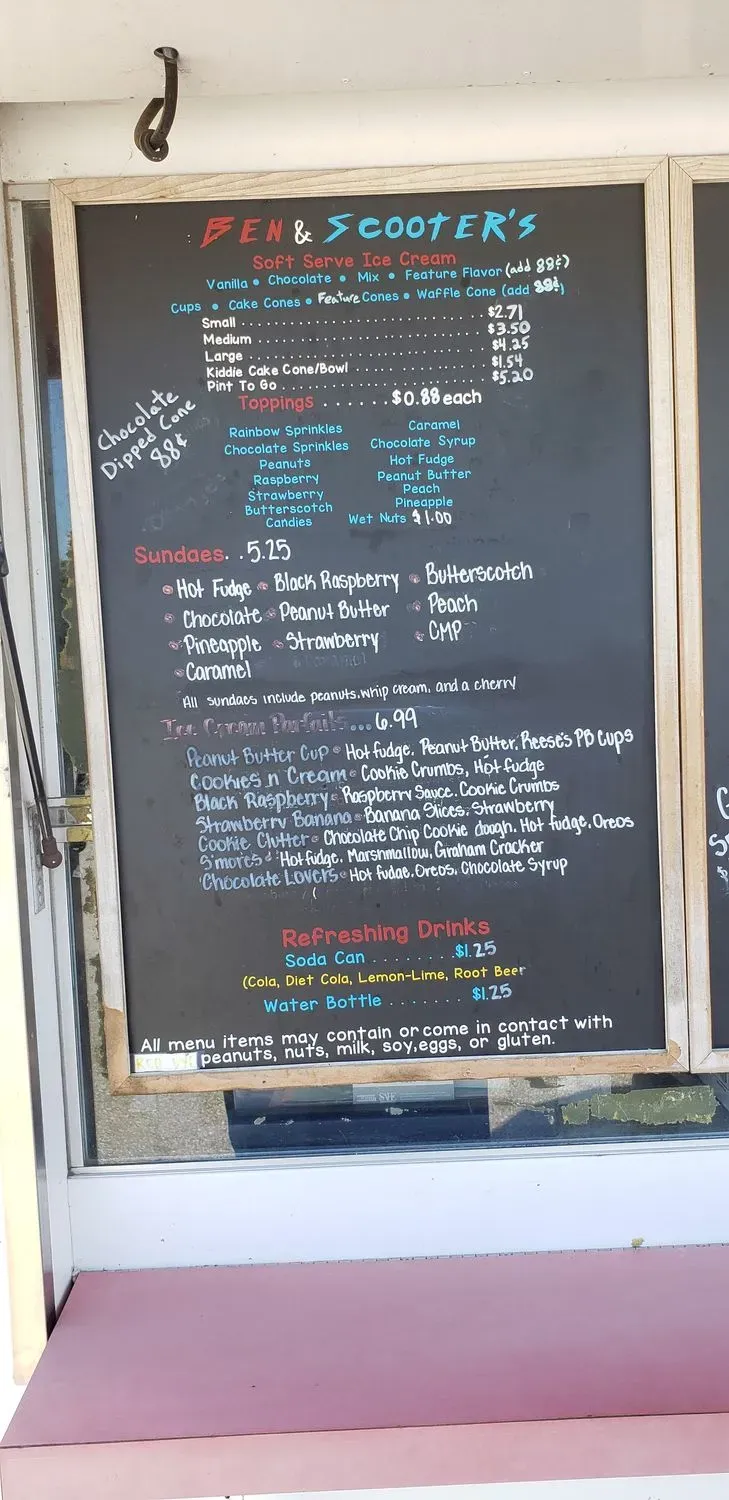 BEN & SCOOTER'S
Soft Serve Ice Cream
Vanilla • Chocolate • Mix • Feature Flavor (add 88¢)
Cups • Cake Cones • Feature Cones • Waffle Cone (add 88¢)
Small . . . . . . . . . . . . . . . . . . . . . . . . $2.71
Medium . . . . . . . . . . . . . . . . . . . . . . $3.50
Large . . . . . . . . . . . . . . . . . . . . . . . . $4.25
Kiddie Cake Cone/Bowl . . . . . . . . . . . . . $1.54
Pint To Go . . . . . . . . . . . . . . . . . . . . $5.20
Toppings . . . . . . $0.88 each
Chocolate
Dipped Cone
88¢
Rainbow Sprinkles Caramel
Chocolate Sprinkles Chocolate Syrup
Peanuts Hot Fudge
Raspberry Peanut Butter
Strawberry Peach
Butterscotch Pineapple
Candies Wet Nuts $1.00
Sundaes. . 5.25
• Hot Fudge • Black Raspberry • Butterscotch
• Chocolate • Peanut Butter • Peach
• Pineapple • Strawberry • CMP
• Caramel
All sundaes include peanuts, whip cream, and a cherry
Ice Cream Parfaits... 6.99
Peanut Butter Cup • Hot fudge, Peanut Butter, Reese's PB Cups
Cookies n Cream • Cookie Crumbs, Hot fudge
Black Raspberry • Raspberry Sauce, Cookie Crumbs
Strawberry Banana • Banana Slices, Strawberry
Cookie Clutter • Chocolate Chip Cookie dough, Hot fudge, Oreos
S'mores • Hot fudge, Marshmallow, Graham Cracker
Chocolate Lovers • Hot fudge, Oreos, Chocolate Syrup
Refreshing Drinks
Soda Can . . . . . . . . $1.25
(Cola, Diet Cola, Lemon-Lime, Root Beer
Water Bottle . . . . . . . $1.25
All menu items may contain or come in contact with
peanuts, nuts, milk, soy, eggs, or gluten.